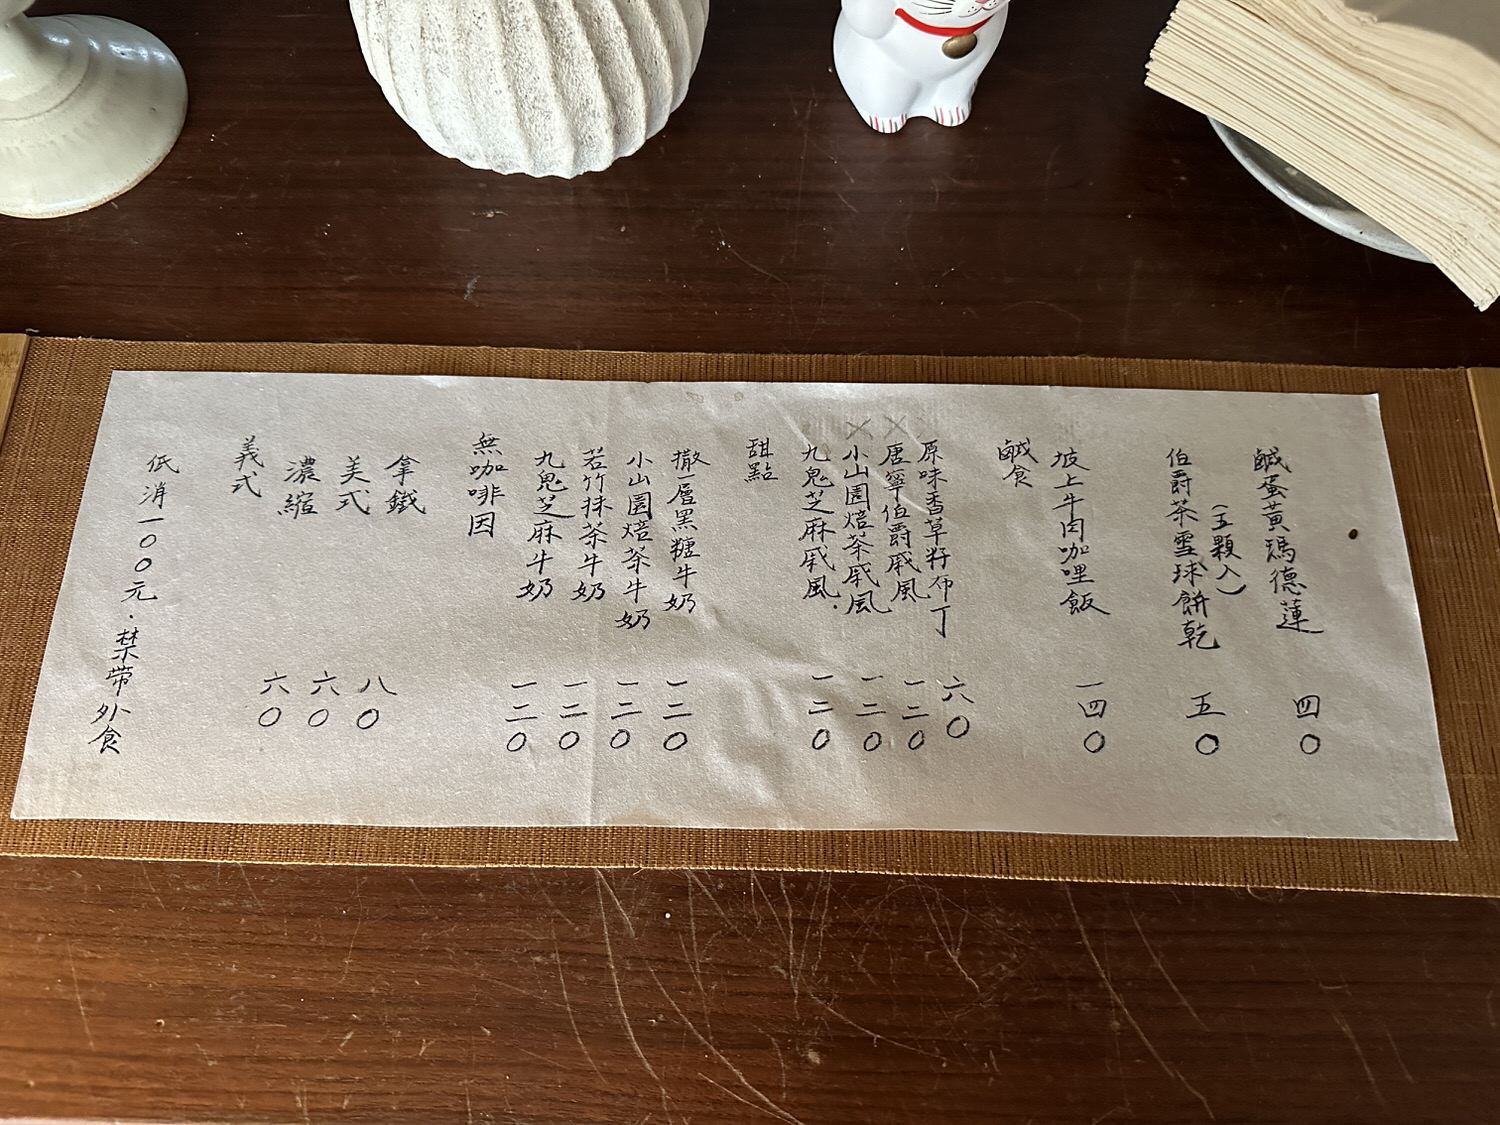 低消一〇〇元.禁帶外食
義式
濃縮 六〇
美式 六〇
拿鐵 八〇
無咖啡因
九鬼芝麻牛奶 一二〇
若竹抹茶牛奶 一二〇
小山園焙茶牛奶 一二〇
撒一層黑糖牛奶 一二〇
甜點
九鬼芝麻戚風. 一二〇
小山園焙茶戚風 一二〇
唐寧伯爵戚風 一二〇
原味香草籽布丁 六〇
鹹食
坡上牛肉咖哩飯 一四〇
伯爵茶雪球餅乾 五〇
(五顆入)
鹹蛋黃瑪德蓮 四〇